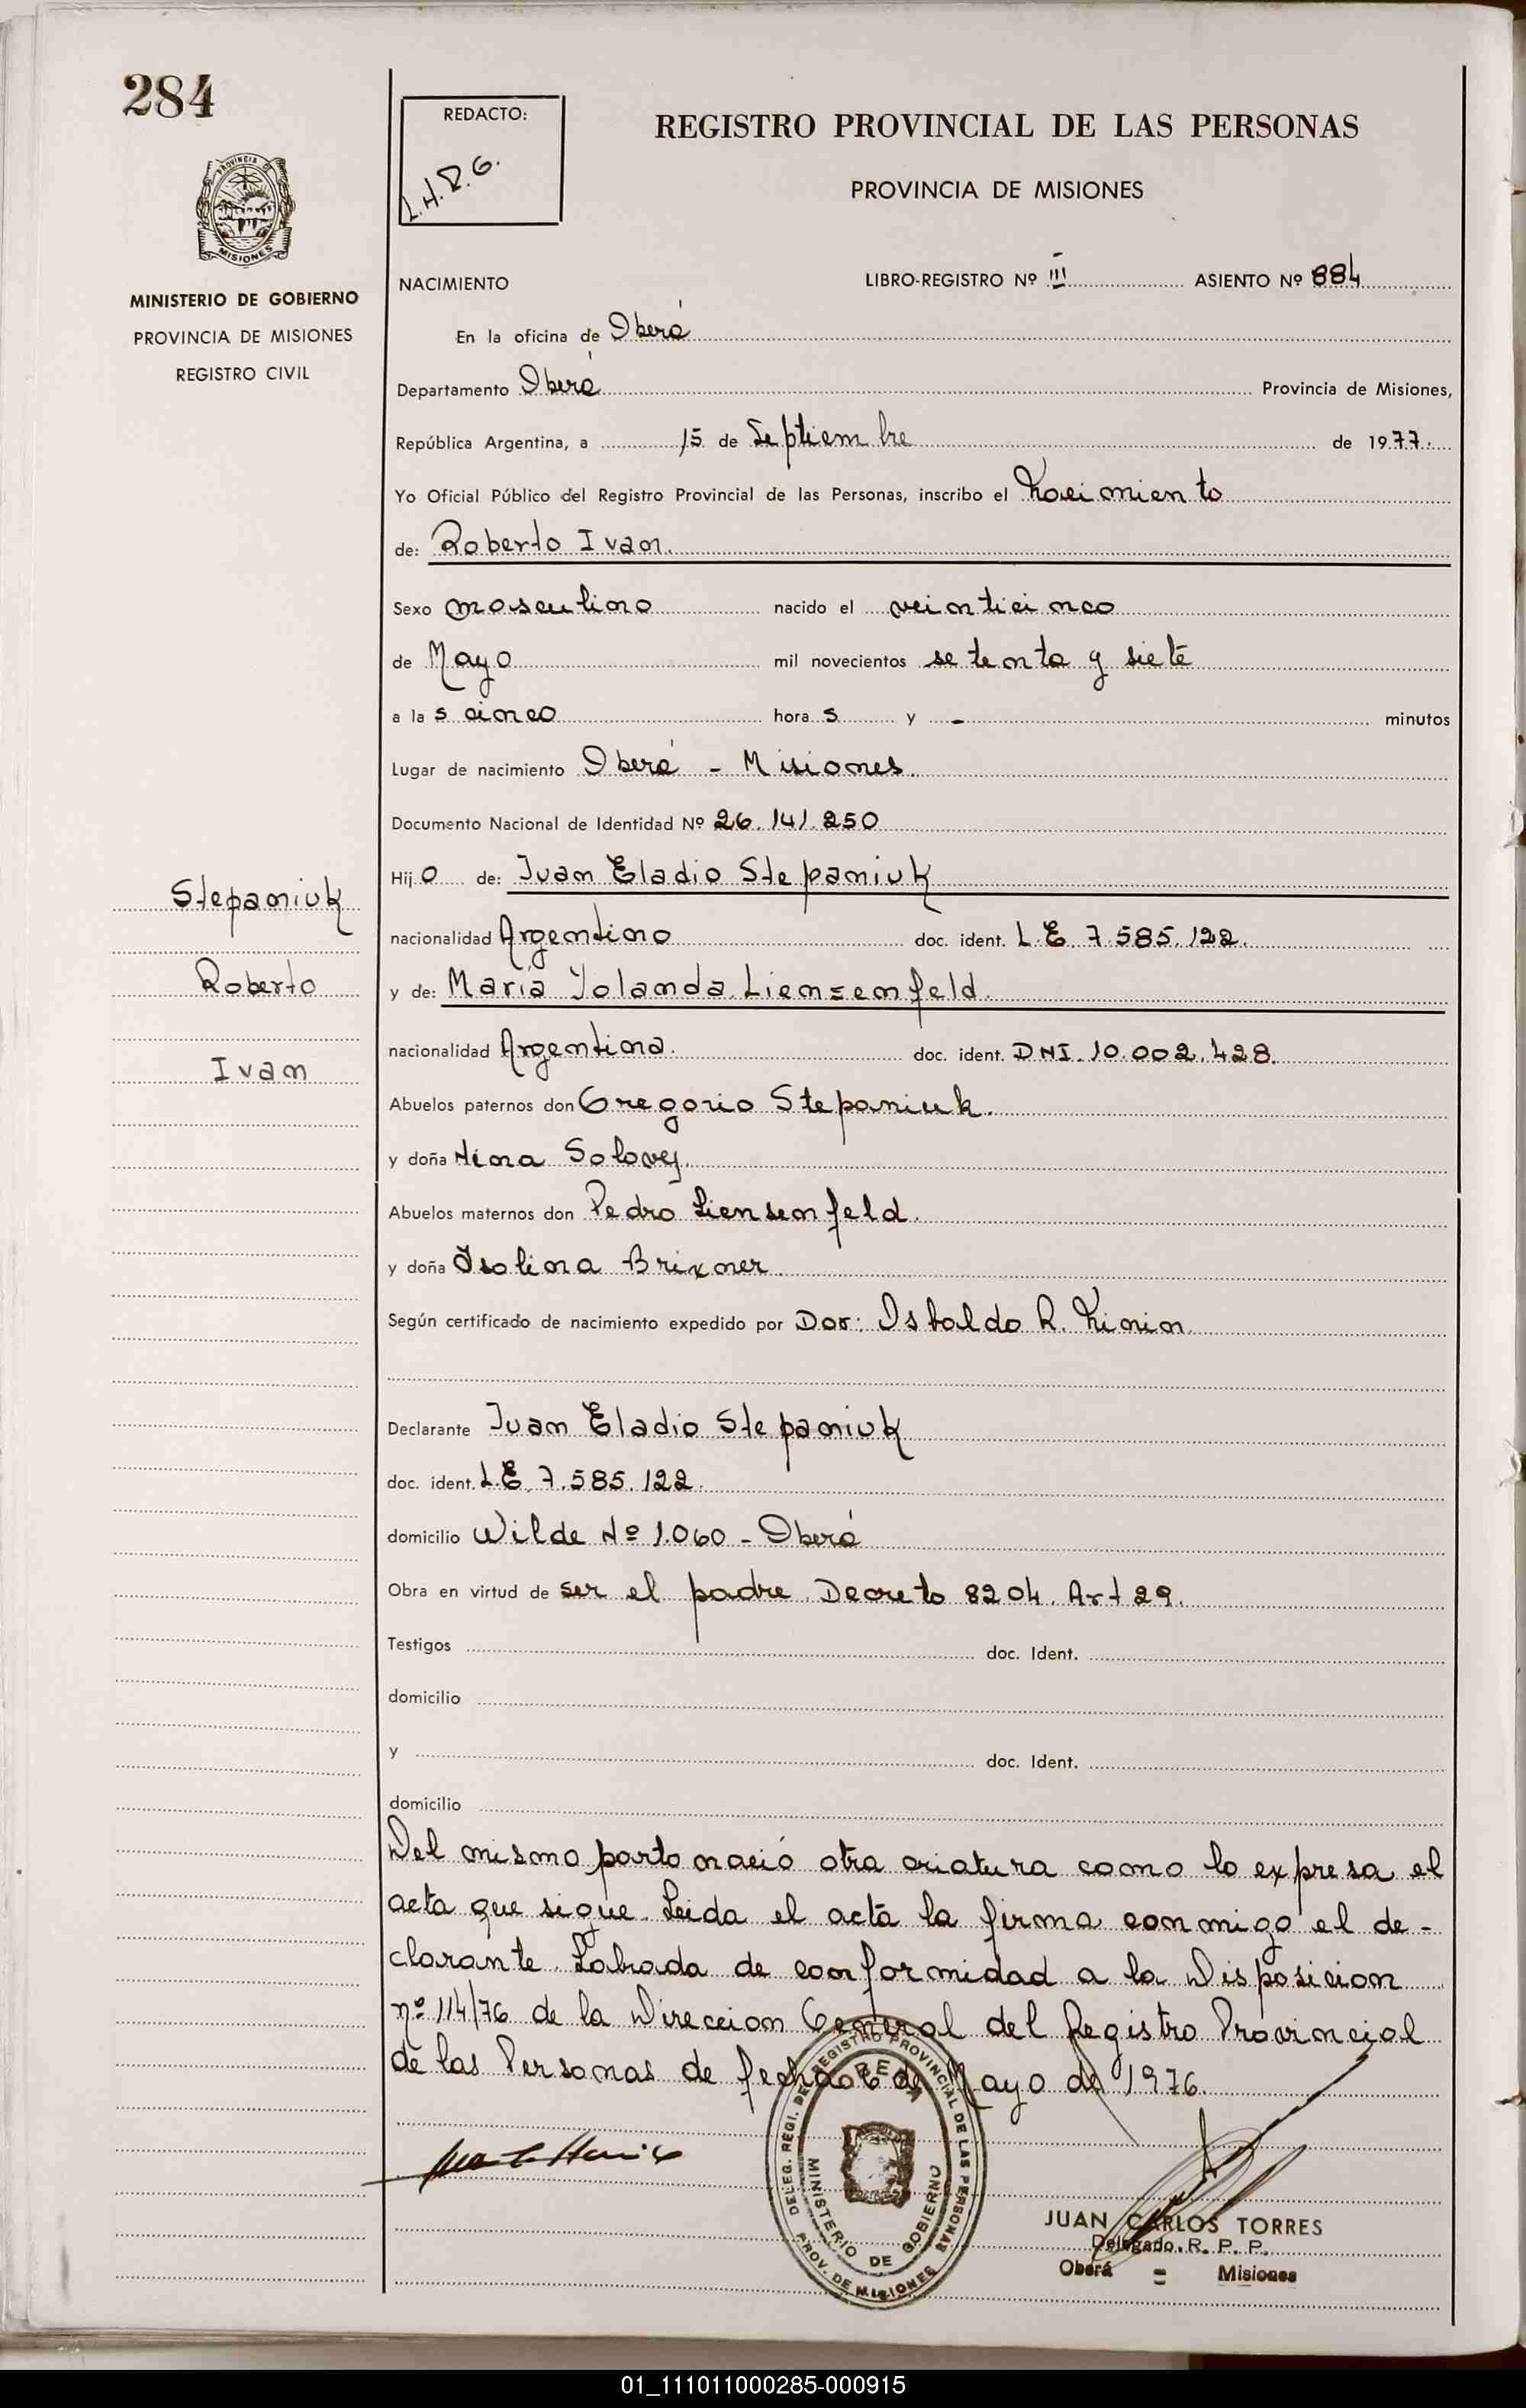 284
REDACTO:
L.H.D.G.
REGISTRO PROVINCIAL DE LAS PERSONAS
PROVINCIA DE MISIONES
PROVINCIA
MISIONES
MINISTERIO DE GOBIERNO
PROVINCIA DE MISIONES
REGISTRO CIVIL
NACIMIENTO LIBRO-REGISTRO Nº III ASIENTO Nº 884
En la oficina de Oberá
Departamento Oberá Provincia de Misiones,
República Argentina, a 15 de Septiembre de 1977.
Yo Oficial Público del Registro Provincial de las Personas, inscribo el Nacimiento
de: Roberto Ivan.
Sexo masculino nacido el veinticinco
de Mayo mil novecientos setenta y siete
a las cinco horas y - minutos
Lugar de nacimiento Oberá - Misiones.
Documento Nacional de Identidad Nº 26.141.250
Hijo de: Juan Eladio Stepaniuk
nacionalidad Argentino doc. ident. L.E. 7.585.122.
y de: María Yolanda Liensenfeld.
nacionalidad Argentina. doc. ident. DNI. 10.002.428.
Abuelos paternos don Gregorio Stepaniuk.
y doña Nina Solovej.
Abuelos maternos don Pedro Liensenfeld.
y doña Isolina Brixner.
Según certificado de nacimiento expedido por Dor: Osvaldo R.
Declarante Juan Eladio Stepaniuk
doc. ident. L.E. 7.585.122.
domicilio Wilde Nº 1.060 - Oberá
Obra en virtud de ser el padre. Decreto 8204. Art 29.
Testigos doc. Ident.
domicilio
y doc. Ident.
domicilio
Del mismo parto nació otra criatura como lo expresa el
acta que sigue. Leida el acta la firma conmigo el de-
clarante. Labrada de conformidad a la Disposicion
nº 114/76 de la Direccion General del Registro Provincial
de las Personas de fecha 6 de Mayo de 1976.
Stepaniuk
Roberto
Ivan
DELEG. REGI. DEL REGISTRO PROVINCIAL DE LAS PERSONAS
MINISTERIO DE GOBIERNO
PROV. DE MISIONES
JUAN CARLOS TORRES
Delegado. R. P. P.
Oberá = Misiones
01_111011000285-000915